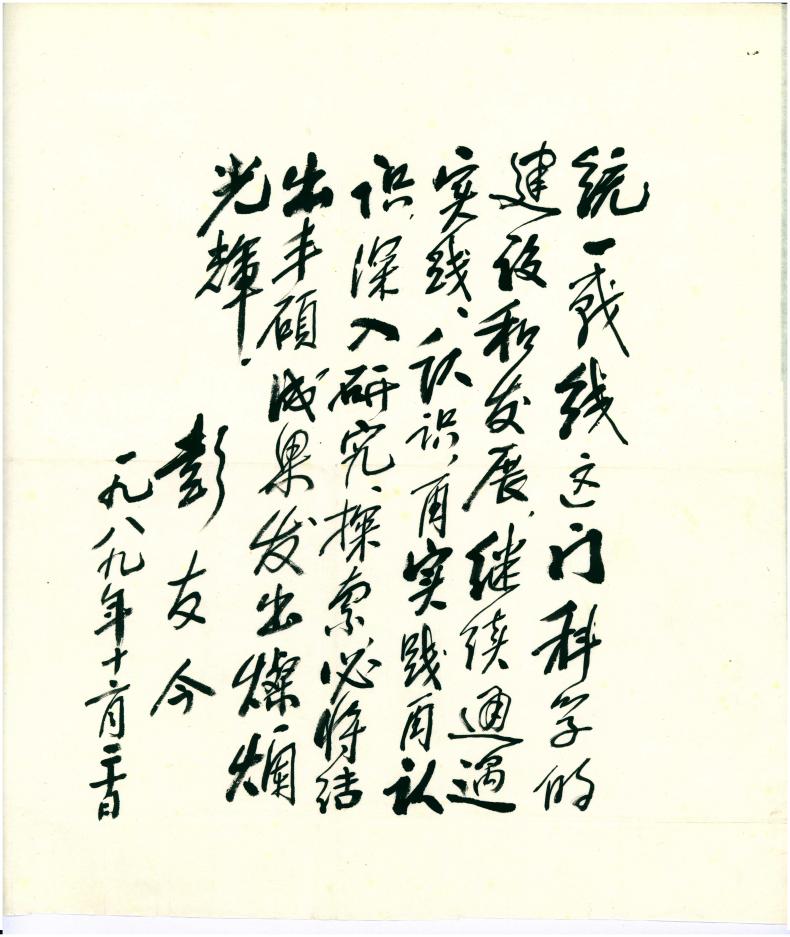 统一战线这门科学的
建设和发展，继续通过
实践、认识，再实践再认
识，深入研究、探索必将结
出丰硕成果发出灿烂
光辉.
彭友今
一九八九年十二月二十日